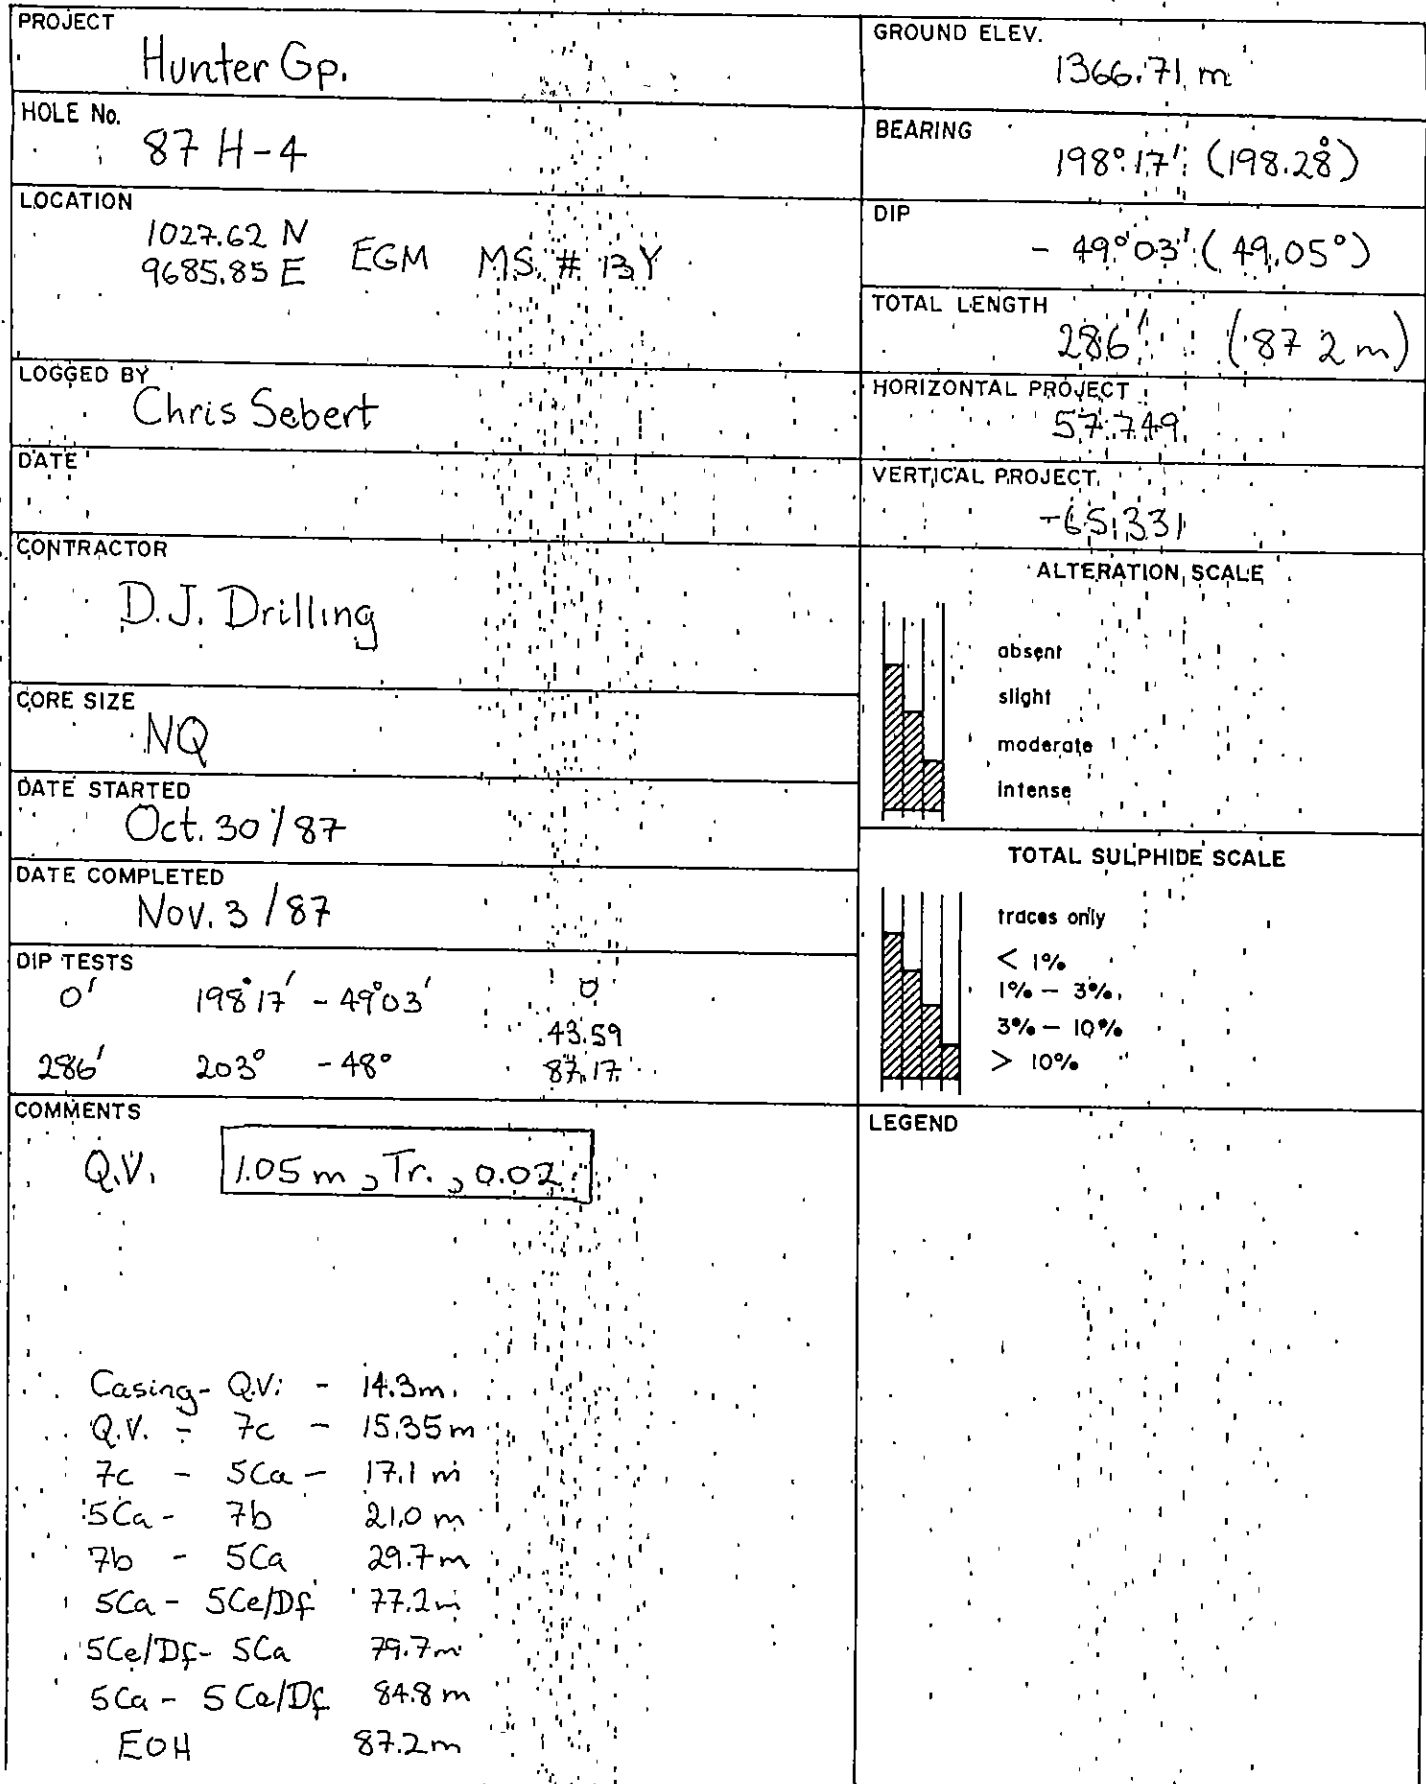 PROJECT
Hunter Gp.
HOLE No.
87 H-4
LOCATION
1027.62 N
9685.85 E EGM MS. # 13Y
LOGGED BY
Chris Sebert
DATE
CONTRACTOR
D.J. Drilling
CORE SIZE
NQ
DATE STARTED
Oct. 30/87
DATE COMPLETED
Nov. 3/87
DIP TESTS
0' 198°17' -49°03' 0
43.59
286' 203° -48° 87.17
COMMENTS
Q.V. 1.05 m, Tr., 0.02
Casing- Q.V. - 14.3m
Q.V. - 7c - 15.35m
7c - 5Ca - 17.1 m
5Ca - 7b 21.0 m
7b - 5Ca 29.7m
5Ca - 5Ce/Df 77.2m
5Ce/Df - 5Ca 79.7m
5Ca - 5Ce/Df 84.8m
EOH 87.2m
GROUND ELEV.
1366.71 m
BEARING
198°17' (198.28°)
DIP
- 49°03' (49.05°)
TOTAL LENGTH
286' (87 2 m)
HORIZONTAL PROJECT
57.749
VERTICAL PROJECT.
-65.331
ALTERATION SCALE
absent
slight
moderate
intense
TOTAL SULPHIDE SCALE
traces only
< 1%
1% - 3%
3% - 10%
> 10%
LEGEND